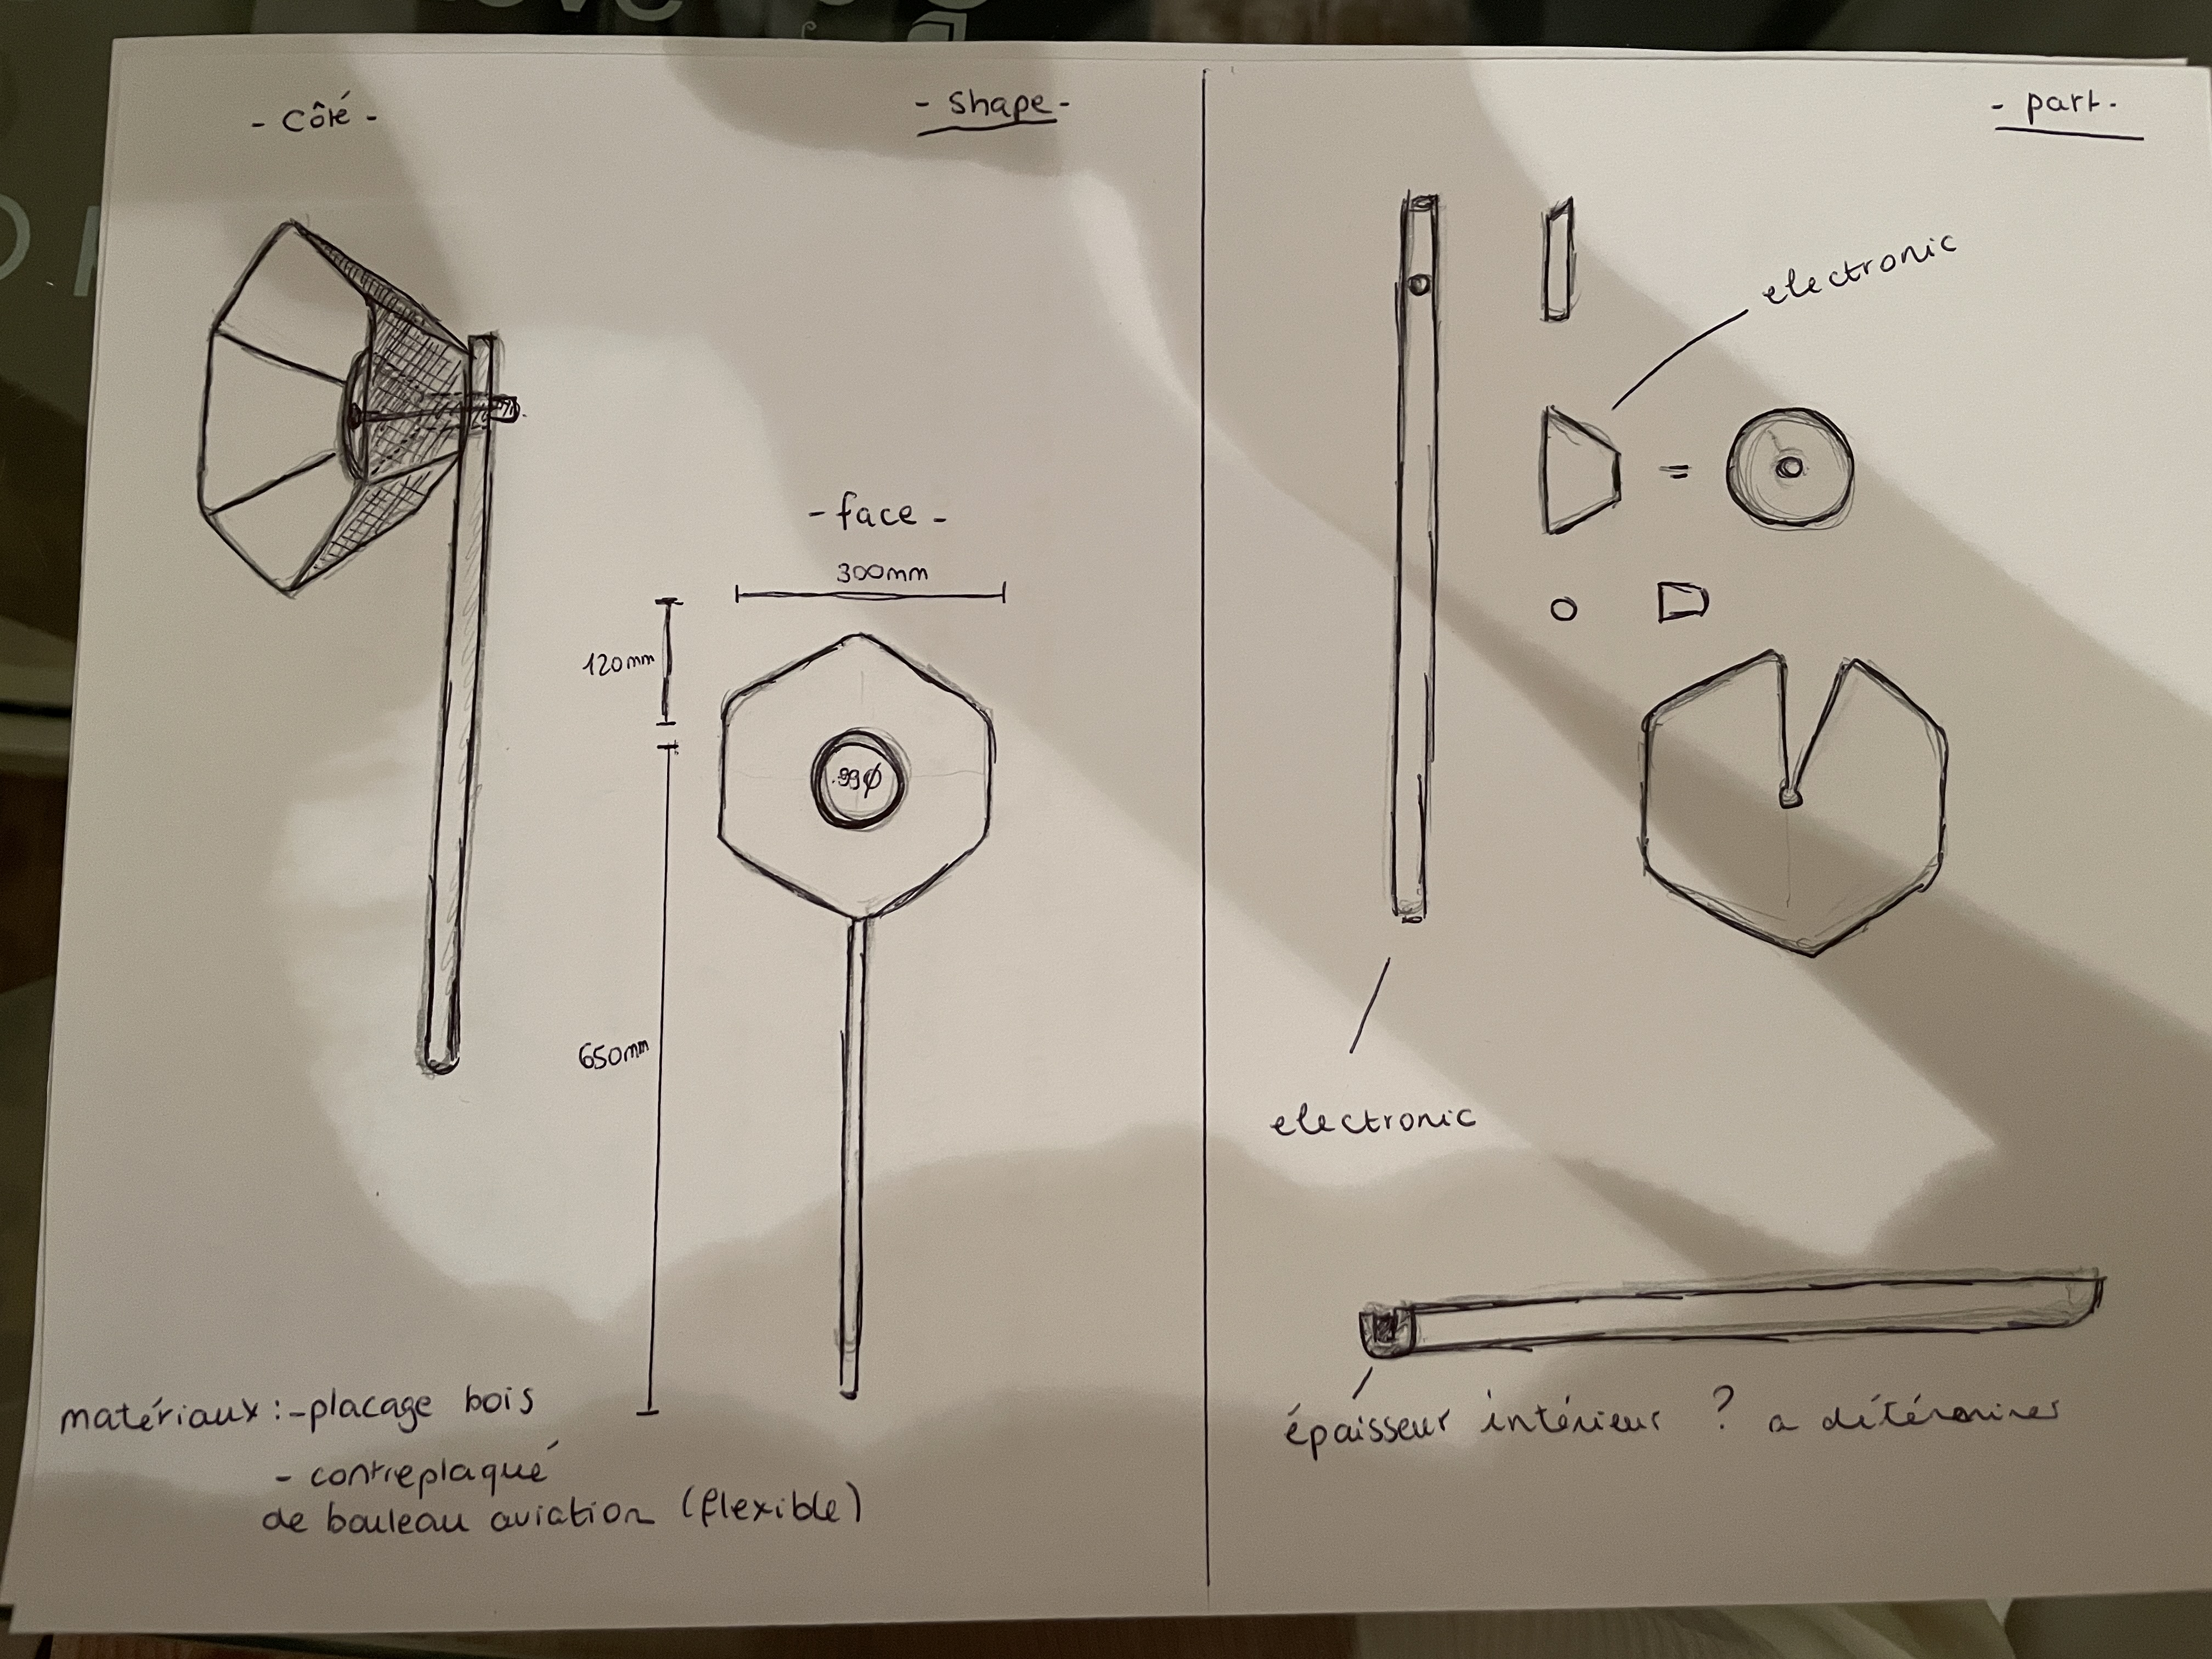 - Shape -
- côté -
- face -
300mm
120mm
650mm
matériaux : - placage bois
- contreplaqué
de bouleau aviation (flexible)
- part -
electronic
=
electronic
épaisseur intérieur ? a détérminer